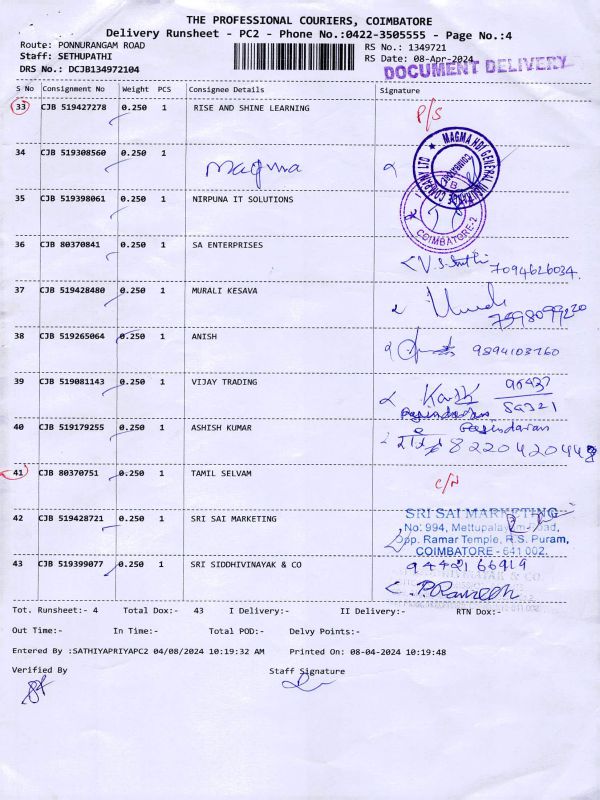 THE PROFESSIONAL COURIERS, COIMBATORE
Delivery Runsheet - PC2 - Phone No.:0422-3505555 - Page No.:4
Route: PONNURANGAM ROAD RS No.: 1349721
Staff: SETHUPATHI RS Date: 08-Apr-2024
DRS No.: DCJB134972104 DOCUMENT DELIVERY
S No Consignment No Weight PCS Consignee Details Signature
33 CJB 519427278 0.250 1 RISE AND SHINE LEARNING P/S
34 CJB 519308560 0.250 1 Magma MAGMA HDI GENERAL INSURANCE COMPANY LTD
35 CJB 519398061 0.250 1 NIRPUNA IT SOLUTIONS COIMBATORE-2
36 CJB 80370841 0.250 1 SA ENTERPRISES 7094626034
37 CJB 519428480 0.250 1 MURALI KESAVA 7598099220
38 CJB 519265064 0.250 1 ANISH 9894103760
39 CJB 519081143 0.250 1 VIJAY TRADING
40 CJB 519179255 0.250 1 ASHISH KUMAR 8220420448
41 CJB 80370751 0.250 1 TAMIL SELVAM C/N
42 CJB 519428721 0.250 1 SRI SAI MARKETING SRI SAI MARKETING
No: 994, Mettupalayam Road,
Opp. Ramar Temple, R.S. Puram,
COIMBATORE - 641 002.
43 CJB 519399077 0.250 1 SRI SIDDHIVINAYAK & CO
Tot. Runsheet:- 4 Total Dox:- 43 I Delivery:- II Delivery:- RTN Dox:-
Out Time:- In Time:- Total POD:- Delvy Points:-
Entered By :SATHIYAPRIYAPC2 04/08/2024 10:19:32 AM Printed On: 08-04-2024 10:19:48
Verified By Staff Signature